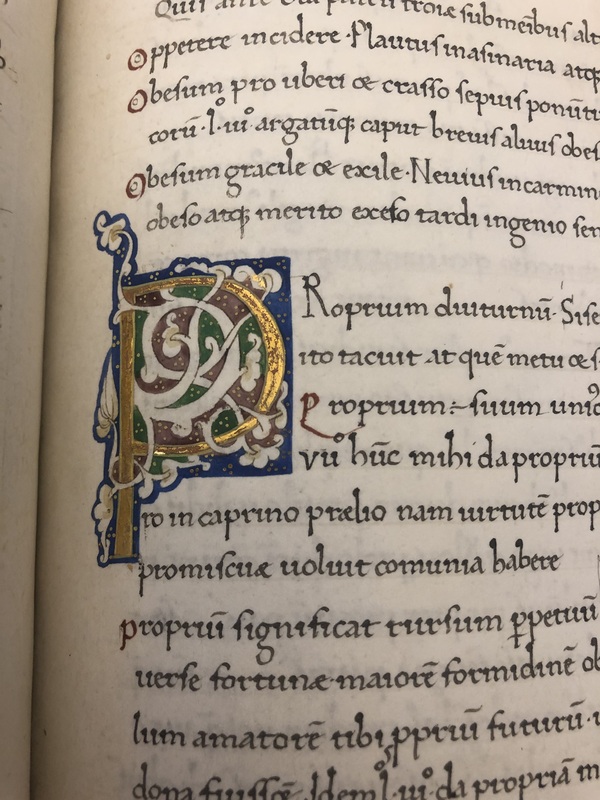 Oppetere incidere · Plautus in asinaria atq
Obesum pro uberi & crasso sepius
corū · l · uiº argatūq; caput breuis aluus obes
Obesum gracile & exile · Neuius in carmin
obeso atq; merito tardi ingenio sen
PRoprium diuturnū · Sise
ito tacuit at quē metu &
Proprium ÷ suum
vuº hūc mihi da propriū
ro in caprino prælio nam uirtutē prop
promiscuæ uoluit comunia habere
propriū significat rursum ꝑpetuū
uerse fortunæ maiorē formidinē ob
lum amatorē tibi ꝓpriū futurū
dona fuissæ · Idem l · uiº da propriā m